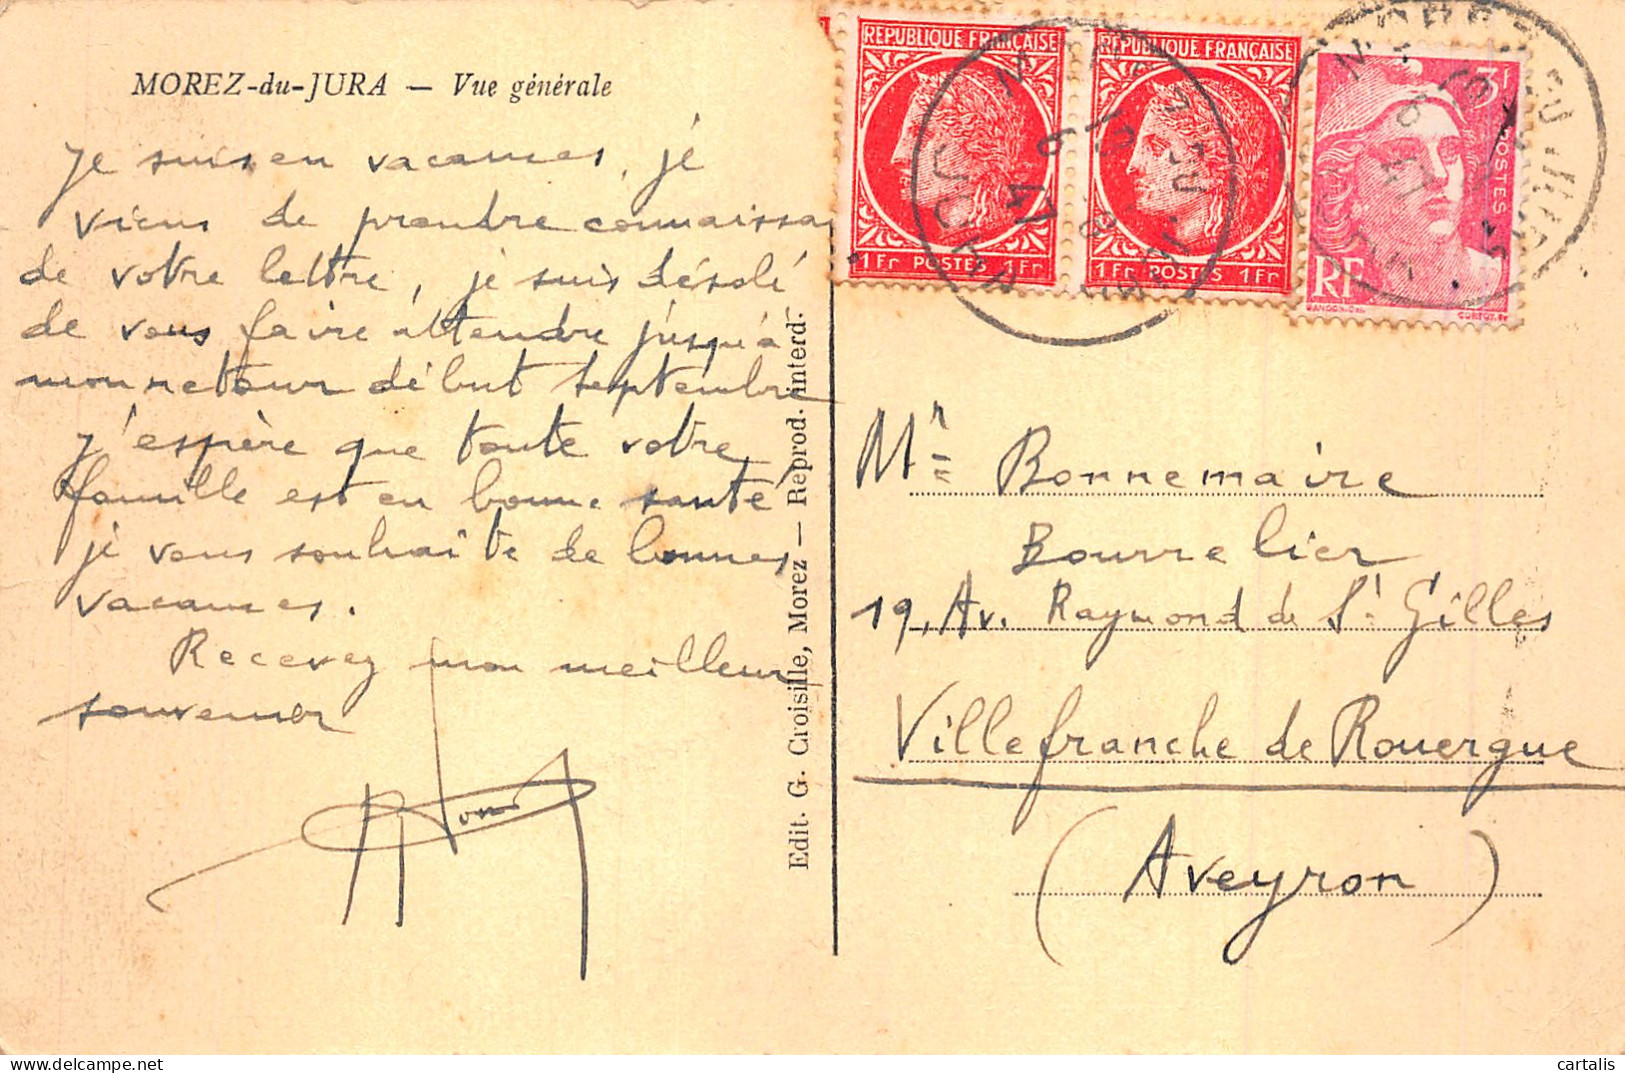 MOREZ-du-JURA — Vue générale
Je suis en vacances, je
viens de prendre connaissan
de votre lettre, je suis désolé
de vous faire attendre jusqu'à
mon retour début septembre
j'espère que toute votre
famille est en bonne santé
je vous souhaite de bonnes
vacances.
Recevez mon meilleur
souvenir
Edit. G. Croisille, Morez — Reprod. interd.
REPUBLIQUE FRANÇAISE
1Fr POSTES 1Fr
REPUBLIQUE FRANÇAISE
1Fr POSTES 1Fr
3f
POSTES
RF
GANDON-DEL
CORTOT.SC
Mr Bonnemaire
Bourrelier
19, Av. Raymond de St Gilles
Villefranche de Rouergue
(Aveyron)
cartalis